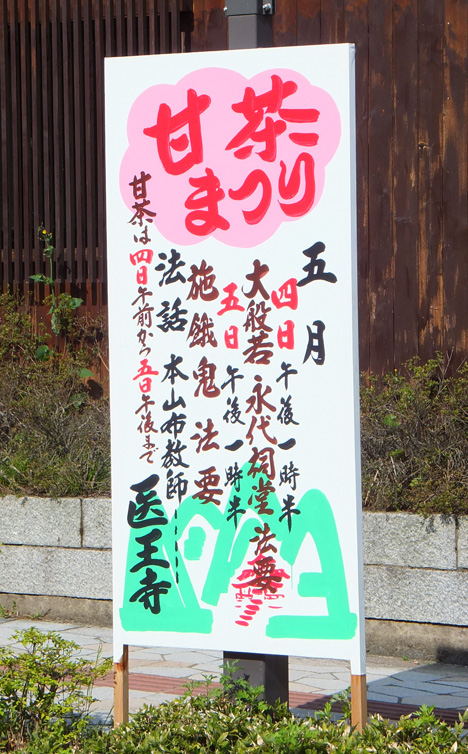 甘茶
まつり
五月
四日午後一時半
大般若 永代祠堂法要
五日午後一時半
施餓鬼法要
法話 本山布教師
甘茶は四日午前から五日午後まで
医王寺